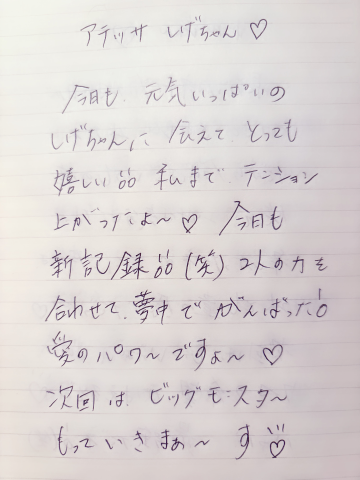 アテッサ しげちゃん♡
今日も、元気いっぱいの
しげちゃんに 会えて、とっても
嬉しい品 私まで、テンション
上がったよ〜♡ 今日も
新記録品(笑) 2人の力を
合わせて、夢中で がんばった!
愛のパワーですょ〜♡
次回は、ビッグモンスター
もっていきまぁ〜す♡